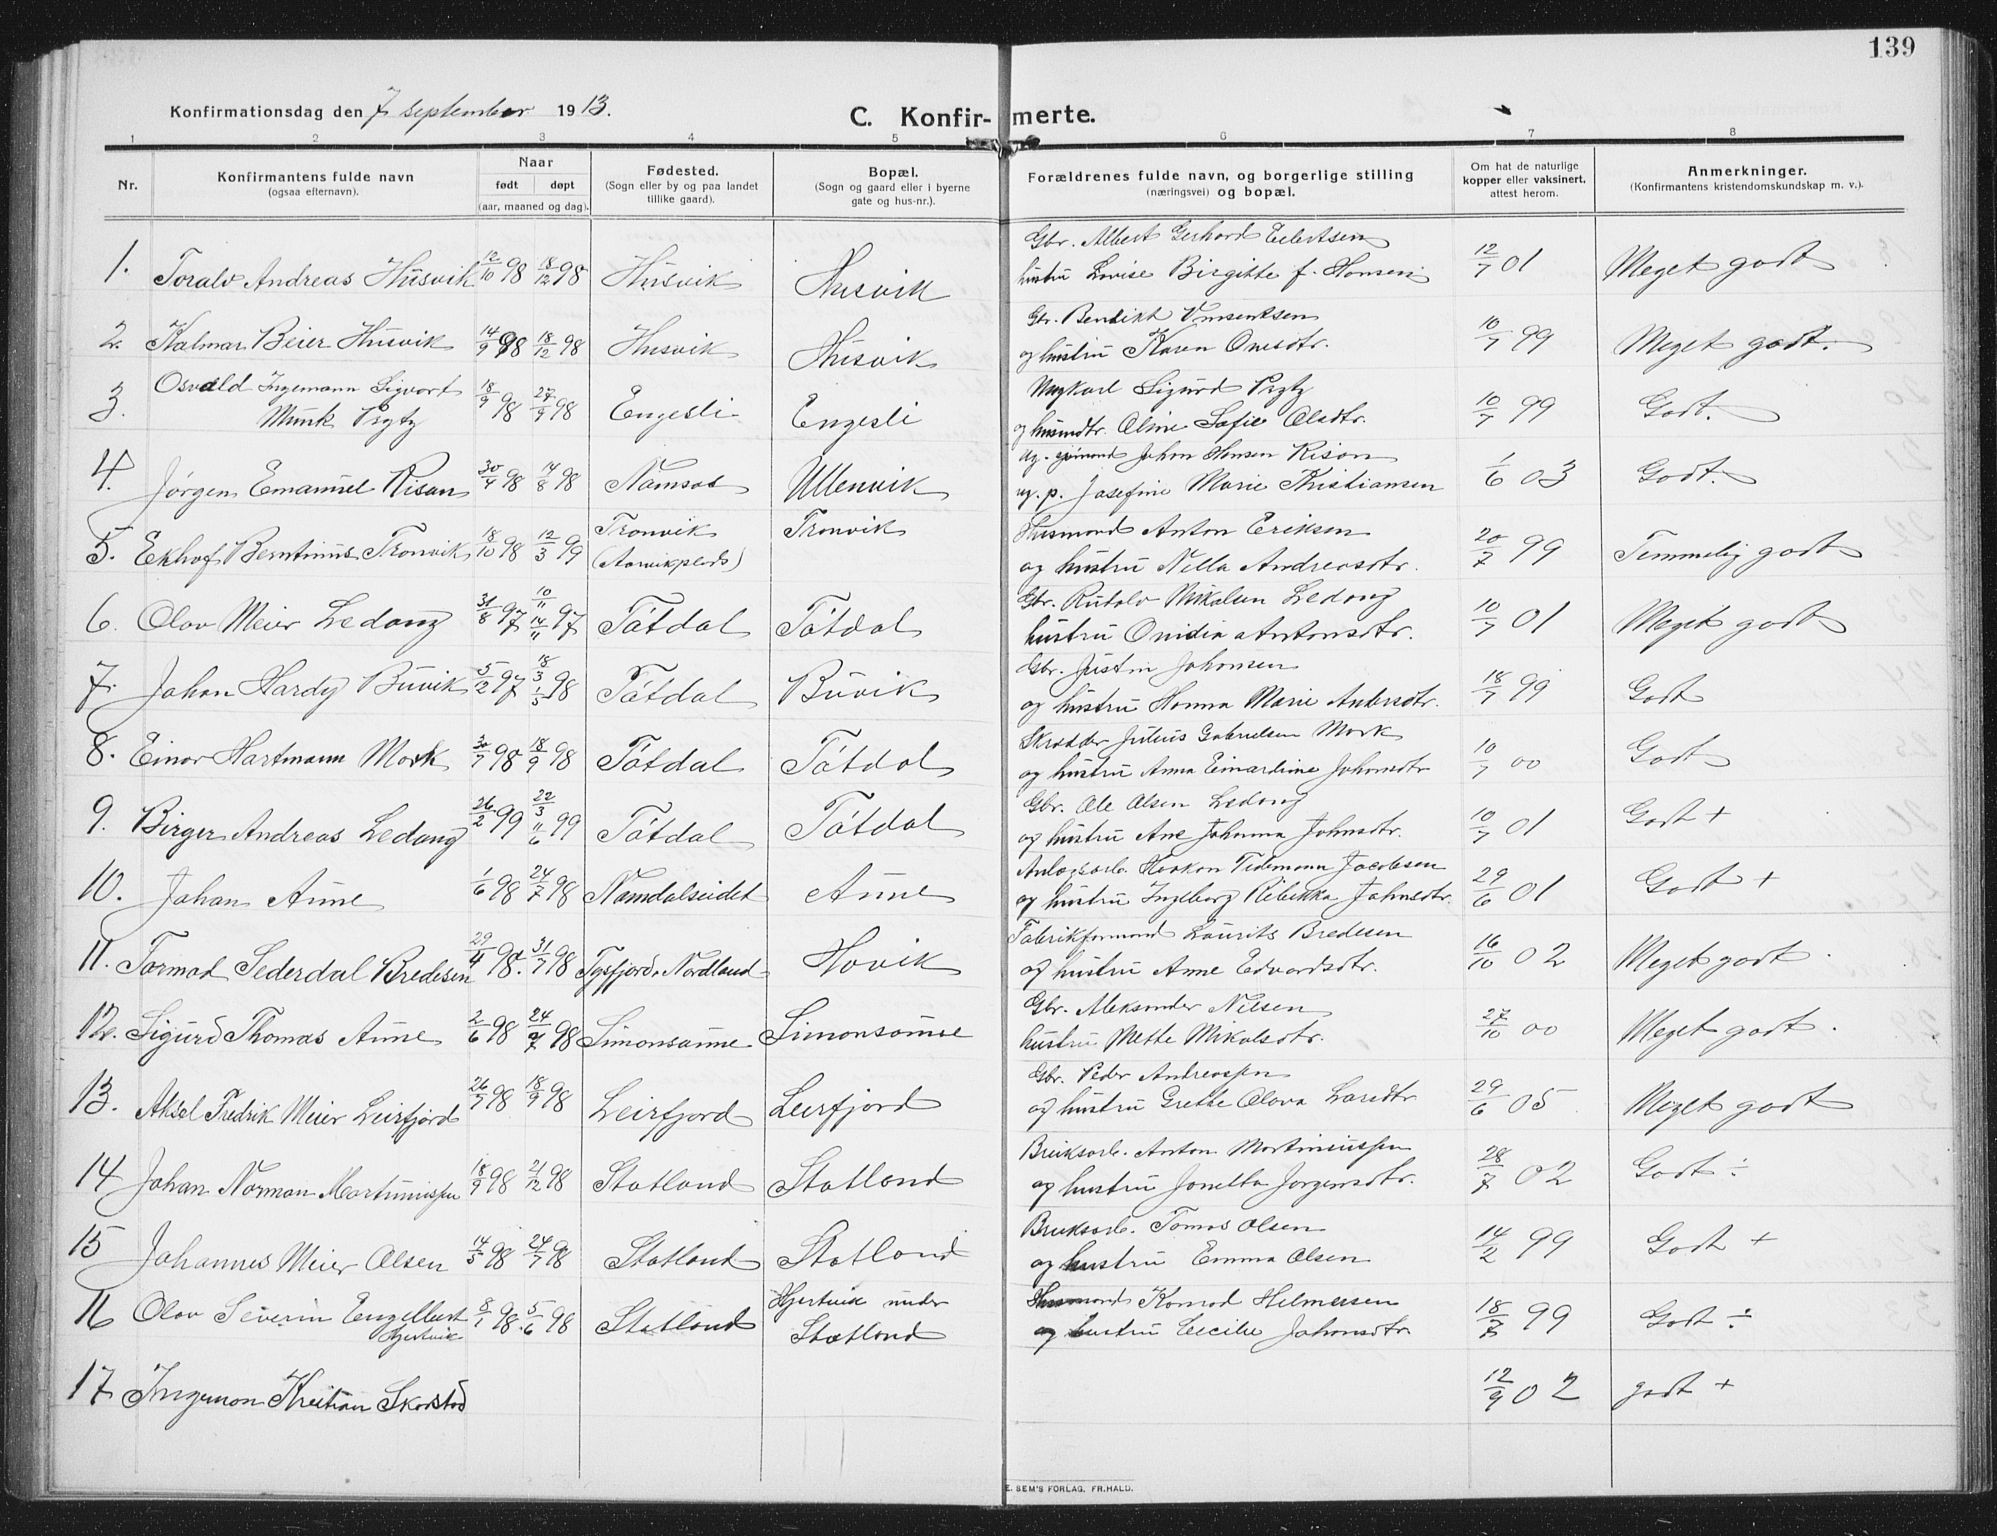 139
Konfirmationsdag den 7 september 1913.
C. Konfir-merte.
1 2 3 4 5 6 7 8
Nr.
Konfirmantens fulde navn
(ogsaa efternavn).
Naar
født døpt
(aar, maaned og dag).
Fødested.
(Sogn eller by og paa landet
tillike gaard).
Bopæl.
(Sogn og gaard eller i byerne
gate og hus-nr.).
Forældrenes fulde navn, og borgerlige stilling
(næringsvei) og bopæl.
Om hat de naturlige
kopper eller vaksinert,
attest herom.
Anmerkninger.
(Konfirmantens kristendomskundskap m. v.).
Gbr. Albert Gerhard Eilertsen
1. Toralv Andreas Husvik 12/10 98 18/12 98 Husvik Husvik hustru Lovise Birgitte f. Hansen 12/7 01 Meget godt
Gbr. Benedikt
2. Hjalmar Beier Husvik 14/9 98 18/12 98 Husvik Husvik og hustru Karen 10/7 99 Meget godt.
Osvald Ingemann Sigvart Ungkarl Sigurd Prytz
3. Munk Prytz 18/9 98 27/9 98 Engesli Engesli og husmdtr. Oline Sofie Olsdtr. 10/7 99 Godt.
ug. Johan Hansen Risan
4. Jørgen Emanuel Risan 30/4 98 14/8 98 Namsos Ullenvik ug. p. Josefine Marie Kristiansen 1/6 03 Godt.
Tronvik Tronvik Husmand Anton Eriksen
5. Ekhof Berntinus Tronvik 18/10 98 12/3 99 (Aarvikplads) og hustru Nella Andreasdtr. 20/7 99 Temmelig godt
10/11 Gbr. Rutalv Mikalsen Ledang
6. Olav Meier Ledang 31/8 97 14/11 97 Tøtdal Tøtdal hustru Ovidia Antonsdtr. 10/7 01 Meget godt
18/3 Gbr. Justin Johansen
7. Johan Hardy Buvik 5/12 97 1/5 98 Tøtdal Buvik og hustru Hanna Marie Andersdtr. 18/7 99 Godt
Skrædder Julius Gabrielsen Mork
8. Einar Hartmann Mork 30/7 98 18/9 98 Tøtdal Tøtdal og hustru Anna Einardine Johansdtr 10/7 00 Godt
22/3 Gbr. Ole Olsen Ledang
9. Birger Andreas Ledang 26/2 99 11/6 99 Tøtdal Tøtdal og hustru Ane Johanna Johnsdtr. 10/7 01 Godt +
Anlægsarb. Haakon Tidemann Jacobsen
10. Johan Aune 1/6 98 24/7 98 Namdalseidet Aune og hustru Ingeborg Rebekka Johnsdtr. 29/6 01 Godt +
Fabrikformand Laurits Bredesen
11. Tormod Sederdal Bredesen 29/4 98. 31/7 98 Tysfjord, Nordland Hovik og hustru Anne Edvardsdtr. 16/10 02 Meget godt.
Gbr. Aleksander Nilsen
12. Sigurd Thomas Aune 2/6 98 24/7 98 Simonsaune Simonsaune hustru Mette Mikalsdtr. 27/10 00 Meget godt.
Gbr. Peder Andreassen
13. Aksel Fredrik Meier Leirfjord 26/7 98 18/9 98 Leirfjord Leirfjord og hustru Grethe Olava Larsdtr 29/6 05 Meget godt
Bruksarb. Anton Martiniussen
14 Johan Norman Martiniussen 18/9 98 21/12 98 Statland Statland og hustru Jonetta Jørgensdtr. 28/7 02 Godt ÷
Bruksarb. Tomas Olsen
15 Johannes Meier Olsen 14/5 98 24/7 98 Statland Statland og hustru Emma Olsen 14/2 99 Godt +
Olav Severin Engelbert Hjertvik under Husmand Konrad Helmersen
16 Hjertvik 8/1 98. 5/6 98 Statland Statland og hustru Cecilie Johansdtr. 18/7 99 Godt ÷
17 Ingeman Kristian Skorstad 12/9 02 godt +
E. SEM'S FORLAG, FR.HALD.